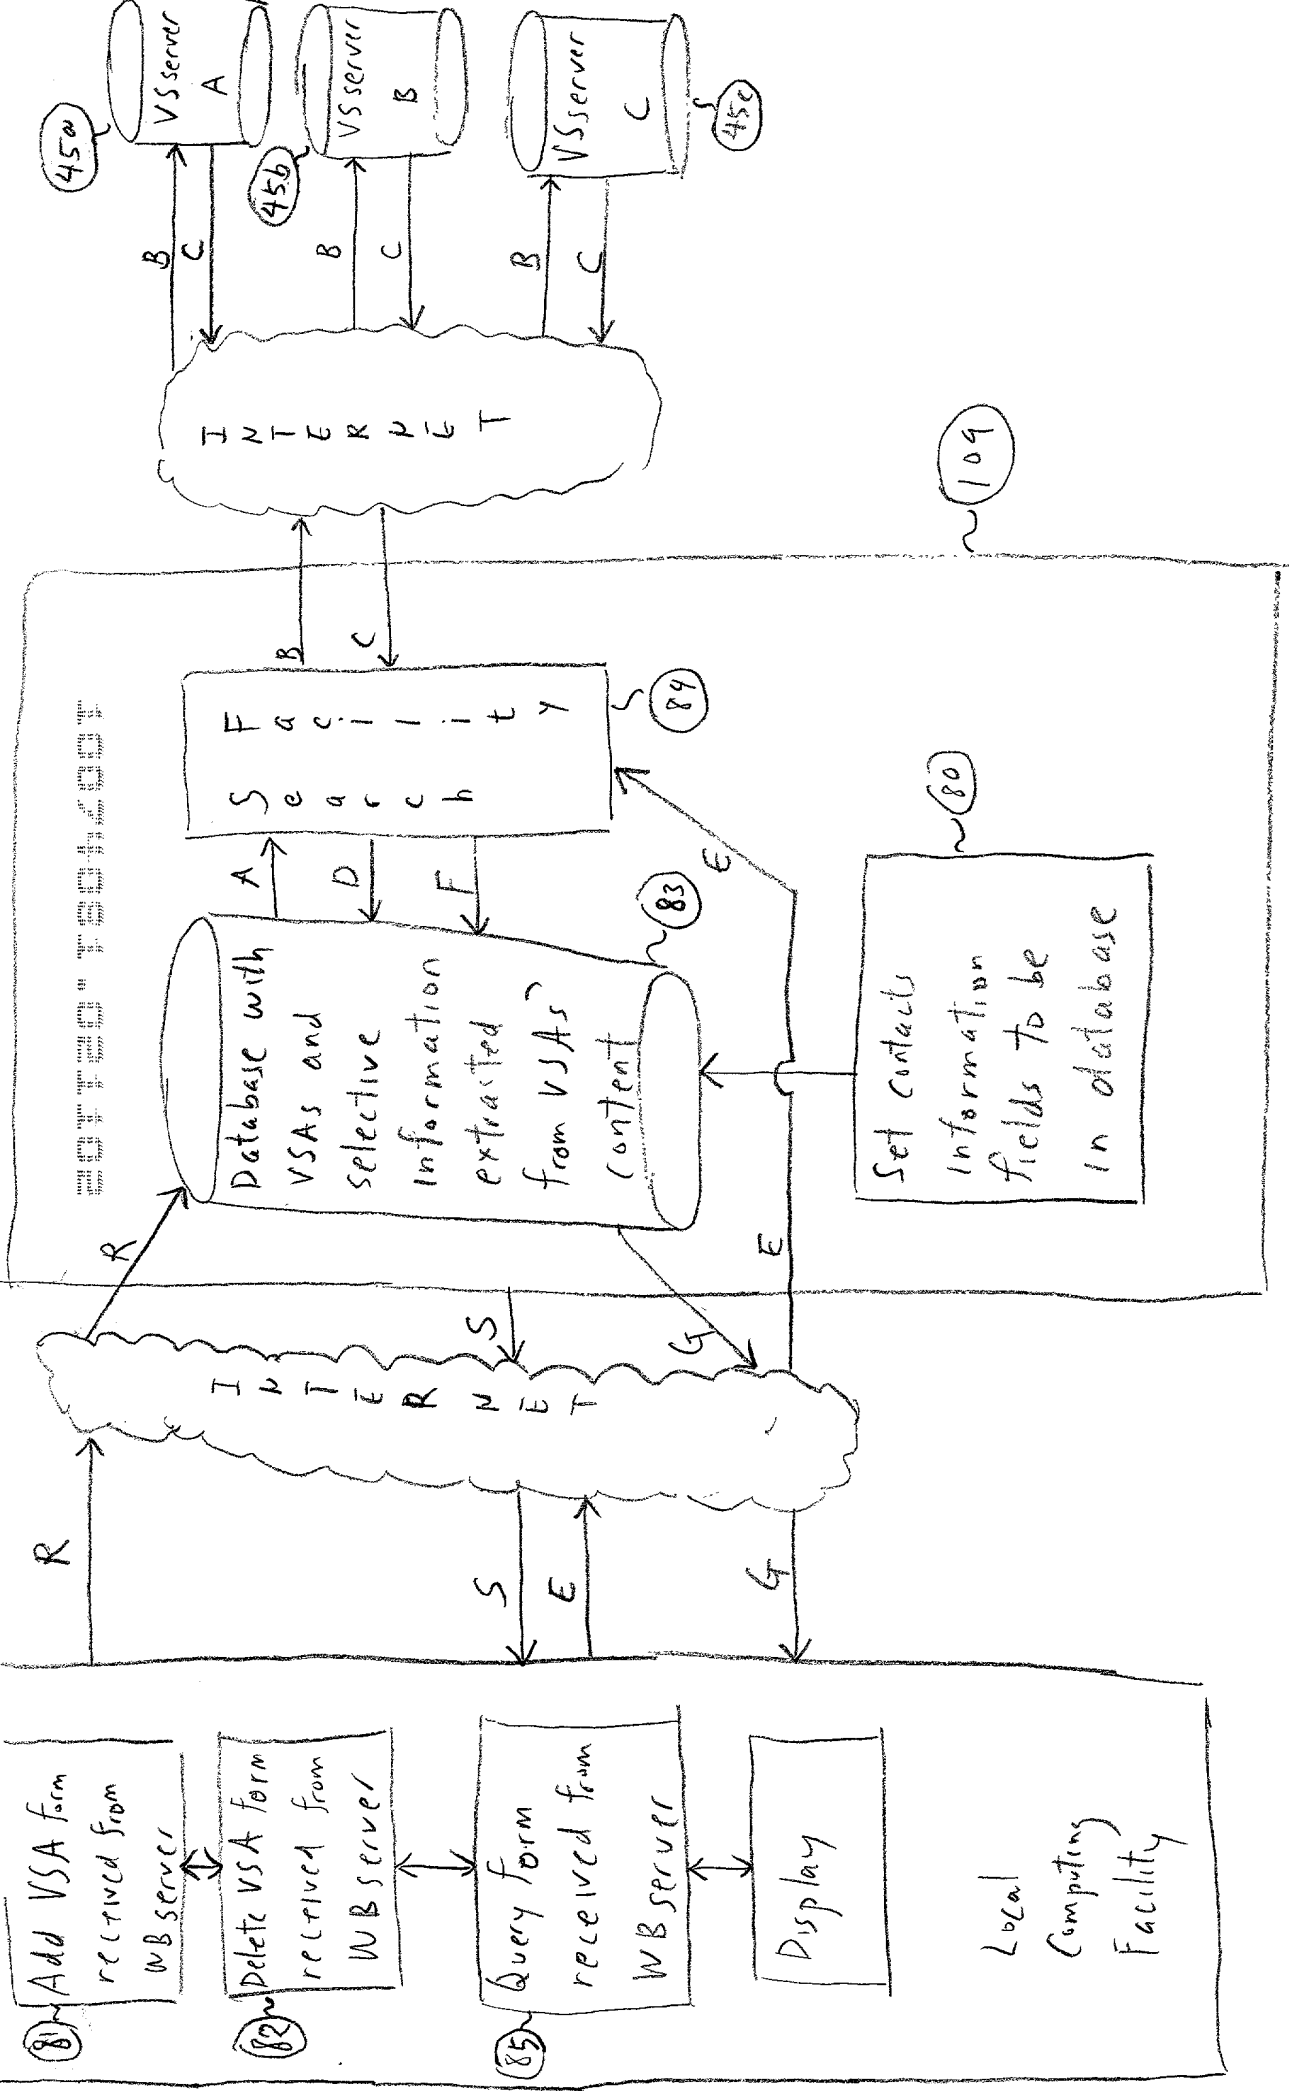 81
Add VSA form
received from
WB server
82
Delete VSA form
received from
WB server
85
Query form
received from
WB server
Display
Local
Computing
Facility
R
S
E
G
INTERNET
R
S
G
E
10074081.021102
Database with
VSAs and
selective
Information
extracted
from VSAs'
content
83
A
D
F
E
Search
Facility
84
Set contacts
Information
fields to be
in database
80
109
B
C
INTERNET
B
C
B
C
B
C
45a
VSserver
A
45b
VSserver
B
45c
VSserver
C